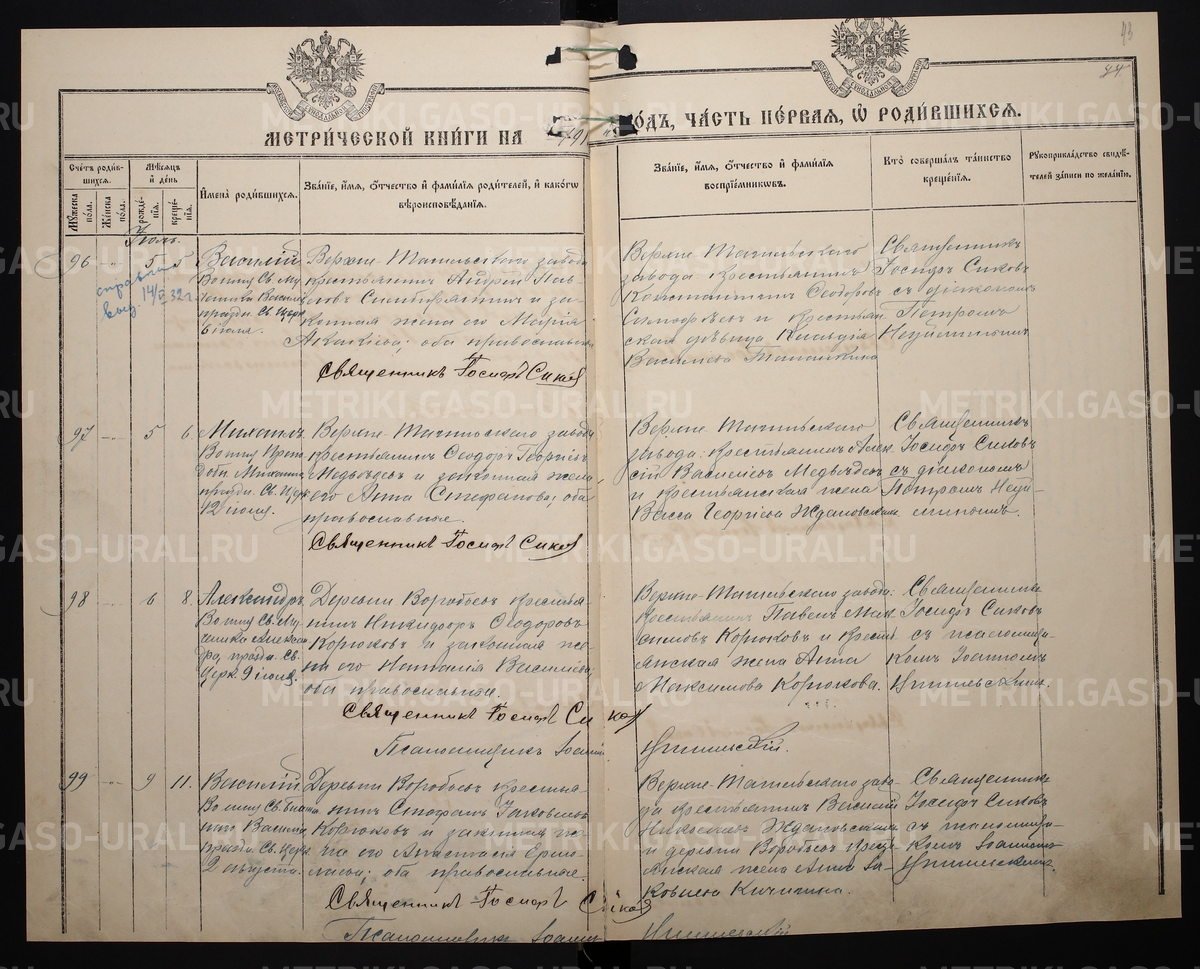 43
44
МЕТРИ́ЧЕСКОЙ КНИ́ГИ НА 191 ГО́ДЪ, ЧА́СТЬ ПЕ́РВАЯ, Ѽ РОДИ́ВШИХСЯ.
Счётъ роди́в-
шихся.
Мѣ́сяцъ
и҆ де́нь
Му́жеска по́ла.
Же́нска по́ла.
рожде́нія.
креще́нія.
И҆мена̀ роди́вшихся.
Зва́ніе, и҆́мя, ѻ҆́тчество и҆ фами́лія роди́телей, и҆ како́гѡ
вѣроисповѣ́данія.
Зва́ніе, и҆́мя, ѻ҆́тчество и҆ фами́лія
воспріе́мникѡвъ.
Кто̀ соверша́лъ та́инство
креще́нія.
Рꙋкоприкла́дство свидѣ́-
телей за́писи по жела́нію.
Іюль.
96 " 5 5
справка
выд. 14/V 32 г.
Василій
Во имя Св. Му-
ченика Васил.
праздн. Св. Церк.
6 іюля.
Верхне-Тагильскаго завода
крестьянинъ Андрей Пав-
ловъ и за-
конная жена его Марія
оба православные
Священникъ Іосифъ Сиковъ
Верхне-Тагильскаго
завода крестьянинъ
Константинъ Ѳеодоровъ
и крестьян-
ская дѣвица Клавдія
Васильева
Священникъ
Іосифъ Сиковъ
съ діакономъ
Петромъ
97 " 5 6
Михаилъ
Во имя Преп-
добн. Михаила
праздн. Св. Церк.
12 іюля.
Верхне-Тагильскаго завода
крестьянинъ Ѳеодоръ Георгіевъ
Медвѣдевъ и законная жена
его Анна Стефанова; оба
православные.
Священникъ Іосифъ Сиковъ
Верхне-Тагильскаго
завода крестьянинъ Алек-
сѣй Васильевъ Медвѣдевъ
и крестьянская жена
Васса Георгіева Ждановская
Священникъ
Іосифъ Сиковъ
съ діакономъ
Петромъ
98 " 6 8
Александръ
Во имя Св. Му-
ченика Алексан-
дра, праздн. Св.
Церк. 9 іюля.
Деревни Воробьевъ крестья-
нинъ Никифоръ Ѳеодоровъ
Корюковъ и законная же-
на его Наталія Васильева,
оба православные.
Священникъ Іосифъ Сиковъ
Псаломщикъ Іоаннъ
Верхне-Тагильскаго завода
крестьянинъ Павелъ Мак-
симовъ Корюковъ и кресть-
янская жена Анна
Максимова Корюкова.
Священникъ
Іосифъ Сиковъ
съ псаломщи-
комъ Іоанномъ
99 " 9 11.
Василій
Во имя Св.
Василія
праздн. Св. Церк.
2 августа.
Деревни Воробьевъ крестья-
нинъ Стефанъ Іаковлевъ
Корюковъ и законная же-
на его Анастасія Ермо-
лаева; оба православные.
Священникъ Іосифъ Сиковъ
Псаломщикъ Іоаннъ
Верхне-Тагильскаго заво-
да крестьянинъ Василій
Николаевъ Ждановскихъ
и деревни Воробьевъ кресть-
янская жена Анна Іа-
ковлева Кичигина.
Священникъ
Іосифъ Сиковъ
съ псаломщи-
комъ Іоанномъ
METRIKI.GASO-URAL.RU